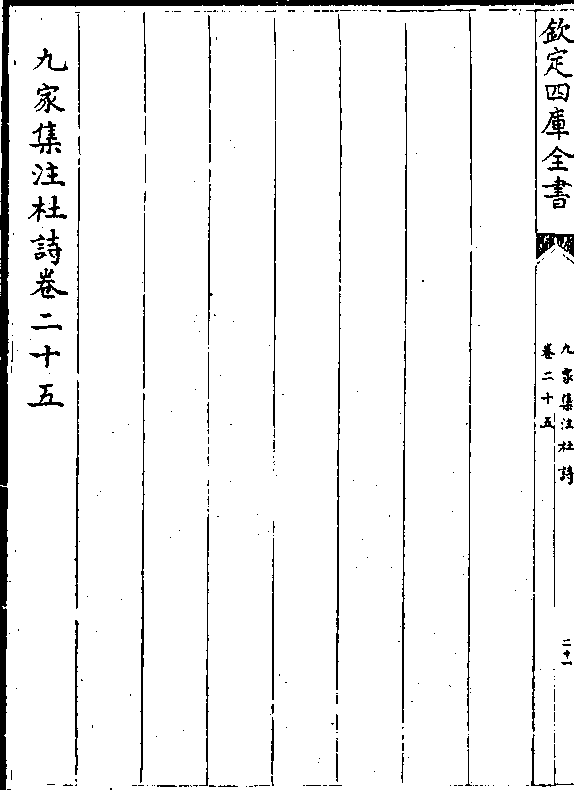 欽定四庫全書
九家集注杜詩
卷二十五
二十一
九家集注杜詩卷二十五